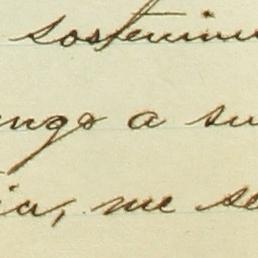 sostenimi
engo a su
ia, me se